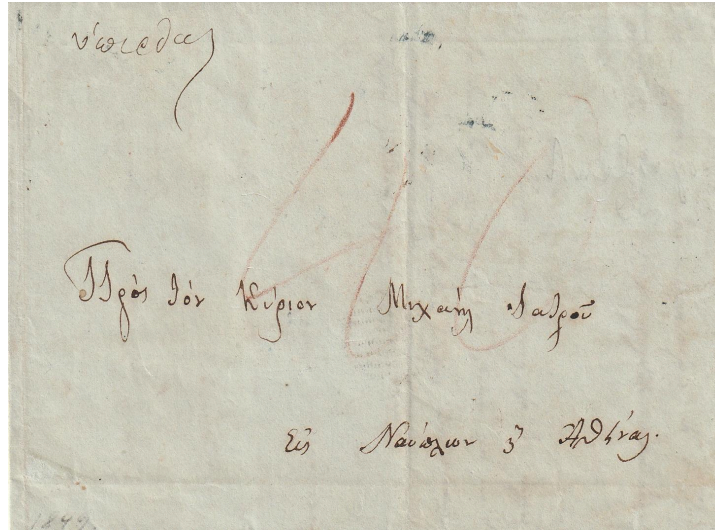 Πρὸς τὸν Κύριον Μιχαὴλ Ἰατροῦ
Εἰς Ναύπλιον ἢ Ἀθήνας.